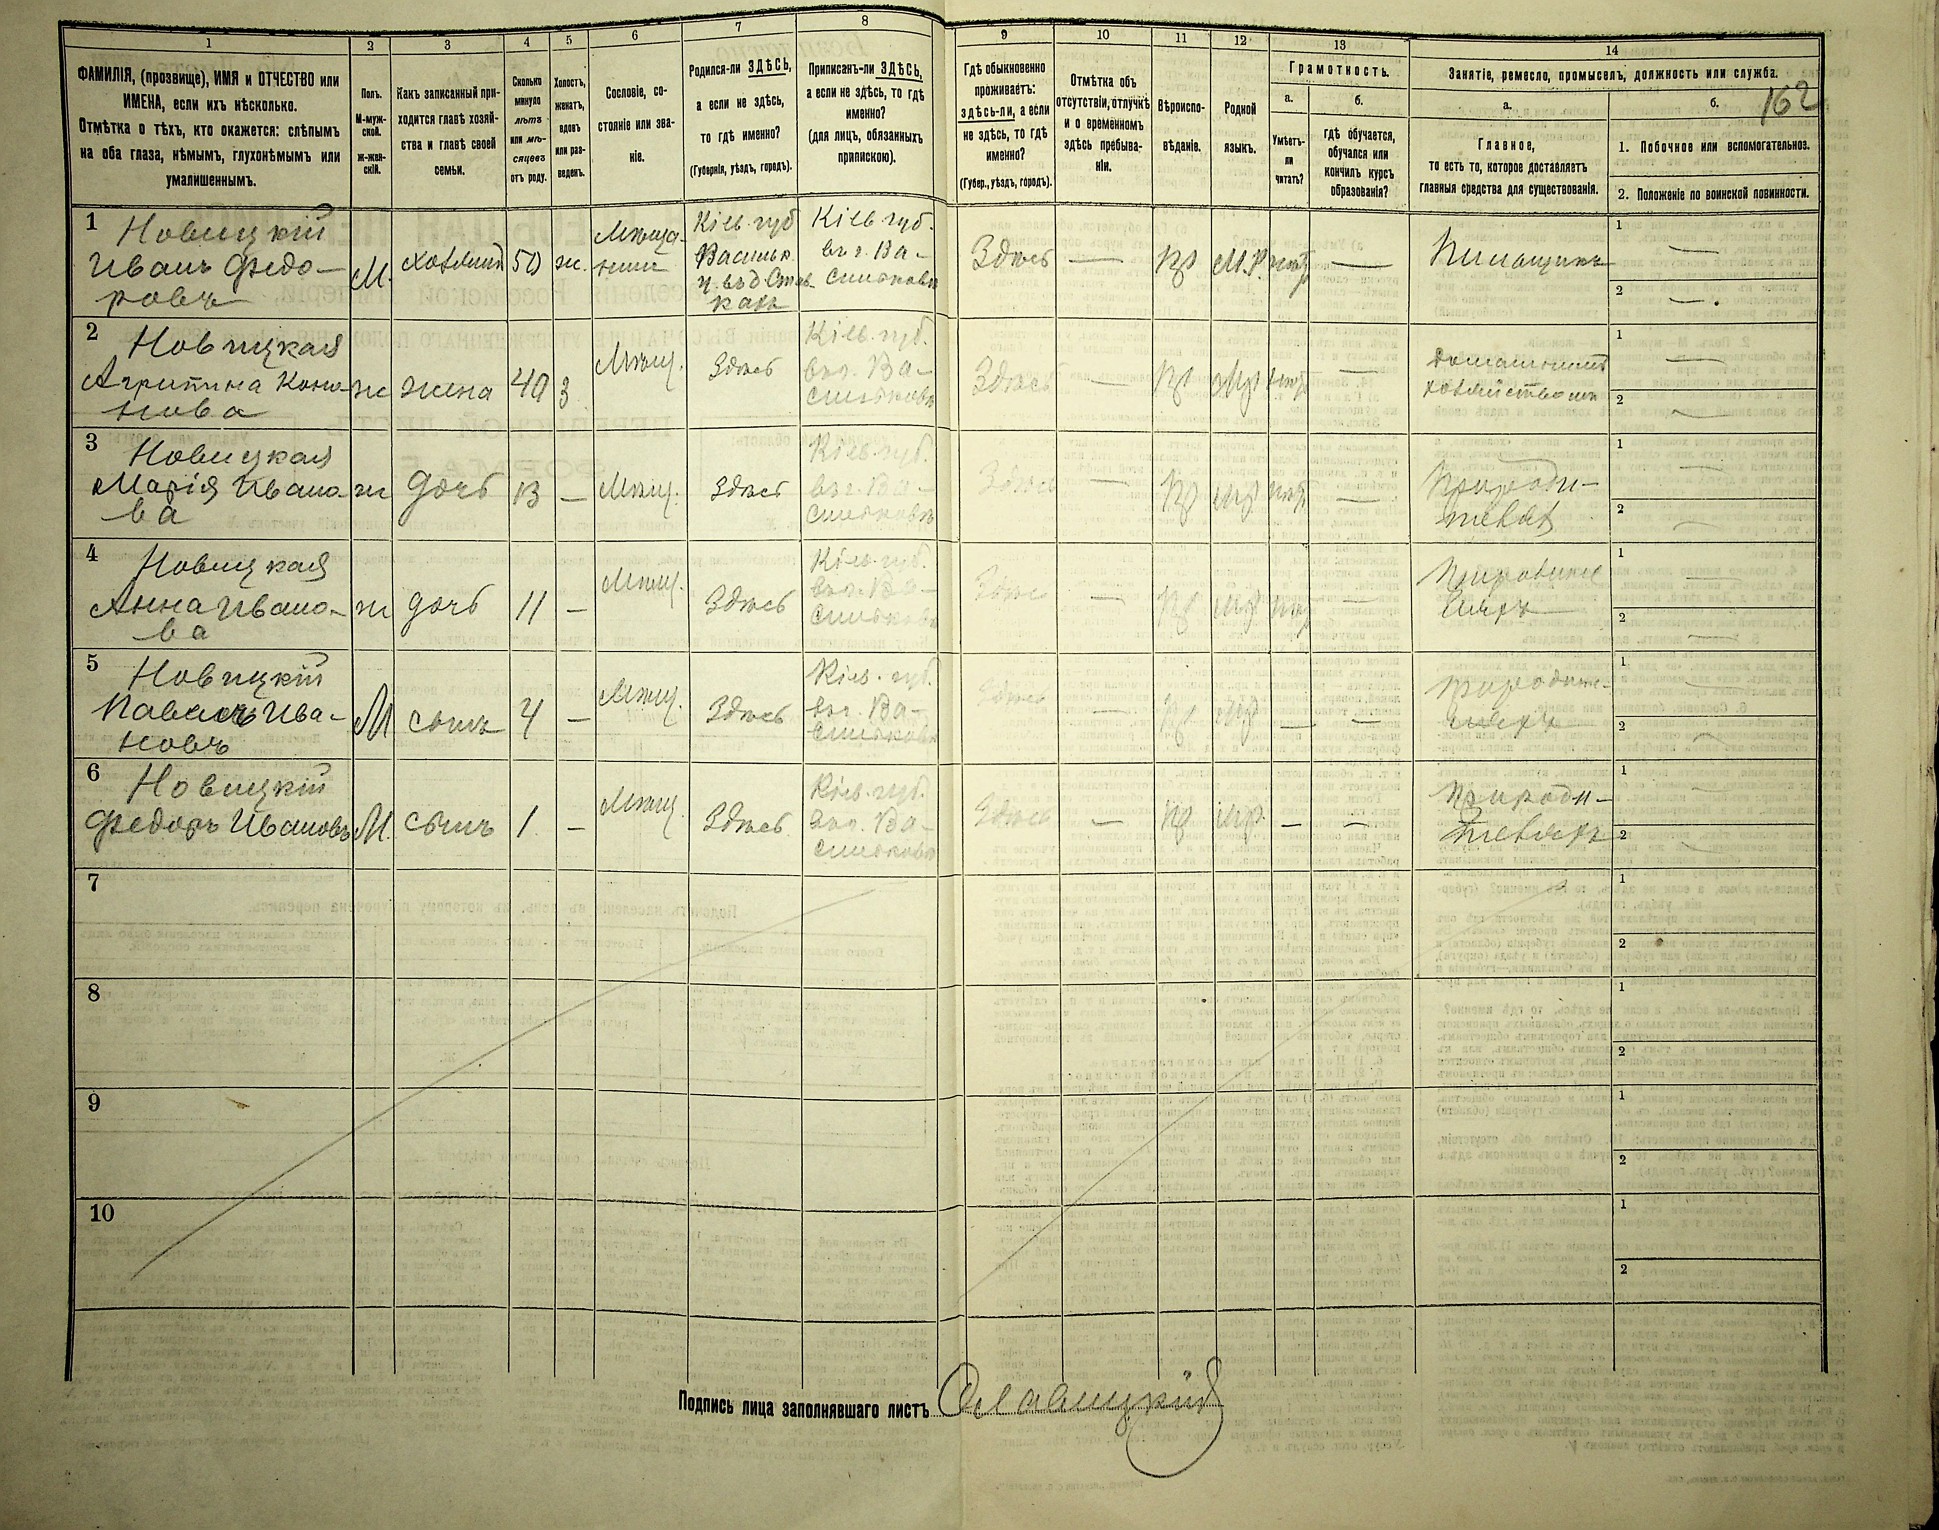 162
1 2 3 4 5 6 7 8 9 10 11 12 13 14
ФАМИЛІЯ, (прозвище), ИМЯ и ОТЧЕСТВО или
ИМЕНА, если ихъ нѣсколько.
Отмѣтка о тѣхъ, кто окажется: слѣпымъ
на оба глаза, нѣмымъ, глухонѣмымъ или
умалишеннымъ.
Полъ.
М-муж-
ской.
ж-жен-
скій.
Какъ записанный при-
ходится главѣ хозяй-
ства и главѣ своей
семьи.
Сколько
минуло
лѣтъ
или мѣ-
сяцевъ
отъ роду.
Холостъ,
женатъ,
вдовъ
или раз-
веденъ.
Сословіе, со-
стояніе или зва-
ніе.
Родился-ли ЗДѢСЬ,
а если не здѣсь,
то гдѣ именно?
(Губернія, уѣздъ, городъ).
Приписанъ-ли ЗДѢСЬ,
а если не здѣсь, то гдѣ
именно?
(для лицъ, обязанныхъ
припискою).
Гдѣ обыкновенно
проживаетъ:
здѣсь-ли, а если
не здѣсь, то гдѣ
именно?
(Губер., уѣздъ, городъ).
Отмѣтка объ
отсутствіи, отлучкѣ
и о временномъ
здѣсь пребыва-
ніи.
Вѣроиспо-
вѣданіе.
Родной
языкъ.
Грамотность.
а.
Умѣетъ-
ли
читать?
б.
гдѣ обучается,
обучался или
кончилъ курсъ
образованія?
Занятіе, ремесло, промыселъ, должность или служба.
а.
Главное,
то есть то, которое доставляетъ
главныя средства для существованія.
б.
1. Побочное или вспомогательное.
2. Положеніе по воинской повинности.
1 Новицкій
Иванъ Федо-
ровъ
М.
хозяинъ
50
ж.
Мѣща-
нинъ
Кіев. губ
Васильк.
Кіев. губ.
въ г. Ва-
сильковѣ
Здѣсь
—
—
1 —
2 —
2 Новицкая
Агрипина Коно-
нова
ж
жена
40
З
Мѣщ.
Здѣсь
Кіев. губ.
въ г. Ва-
сильковѣ
Здѣсь
—
—
домашнимъ
хозяйствомъ
1 —
2 —
3 Новицкая
Марія Ивано-
ва
ж
дочь
13
—
Мѣщ.
Здѣсь
Кіев. губ.
въ г. Ва-
сильковѣ
Здѣсь
—
—
1 —
2 —
4 Новицкая
Анна Ивано-
ва
ж
дочь
11
—
Мѣщ.
Здѣсь
Кіев. губ.
въ г. Ва-
сильковѣ
Здѣсь
—
—
1 —
2 —
5 Новицкій
Павелъ Ива-
новъ
М
сынъ
4
—
Мѣщ.
Здѣсь
Кіев. губ.
въ г. Ва-
сильковѣ
Здѣсь
—
— —
1 —
2 —
6 Новицкій
Федоръ Ивановъ
М.
сынъ
1
—
Мѣщ.
Здѣсь
Кіев. губ.
въ г. Ва-
сильковѣ
Здѣсь
—
— —
1 —
2 —
7
1
2
8
1
2
9
1
2
10
1
2
Подпись лица заполнявшаго листъ